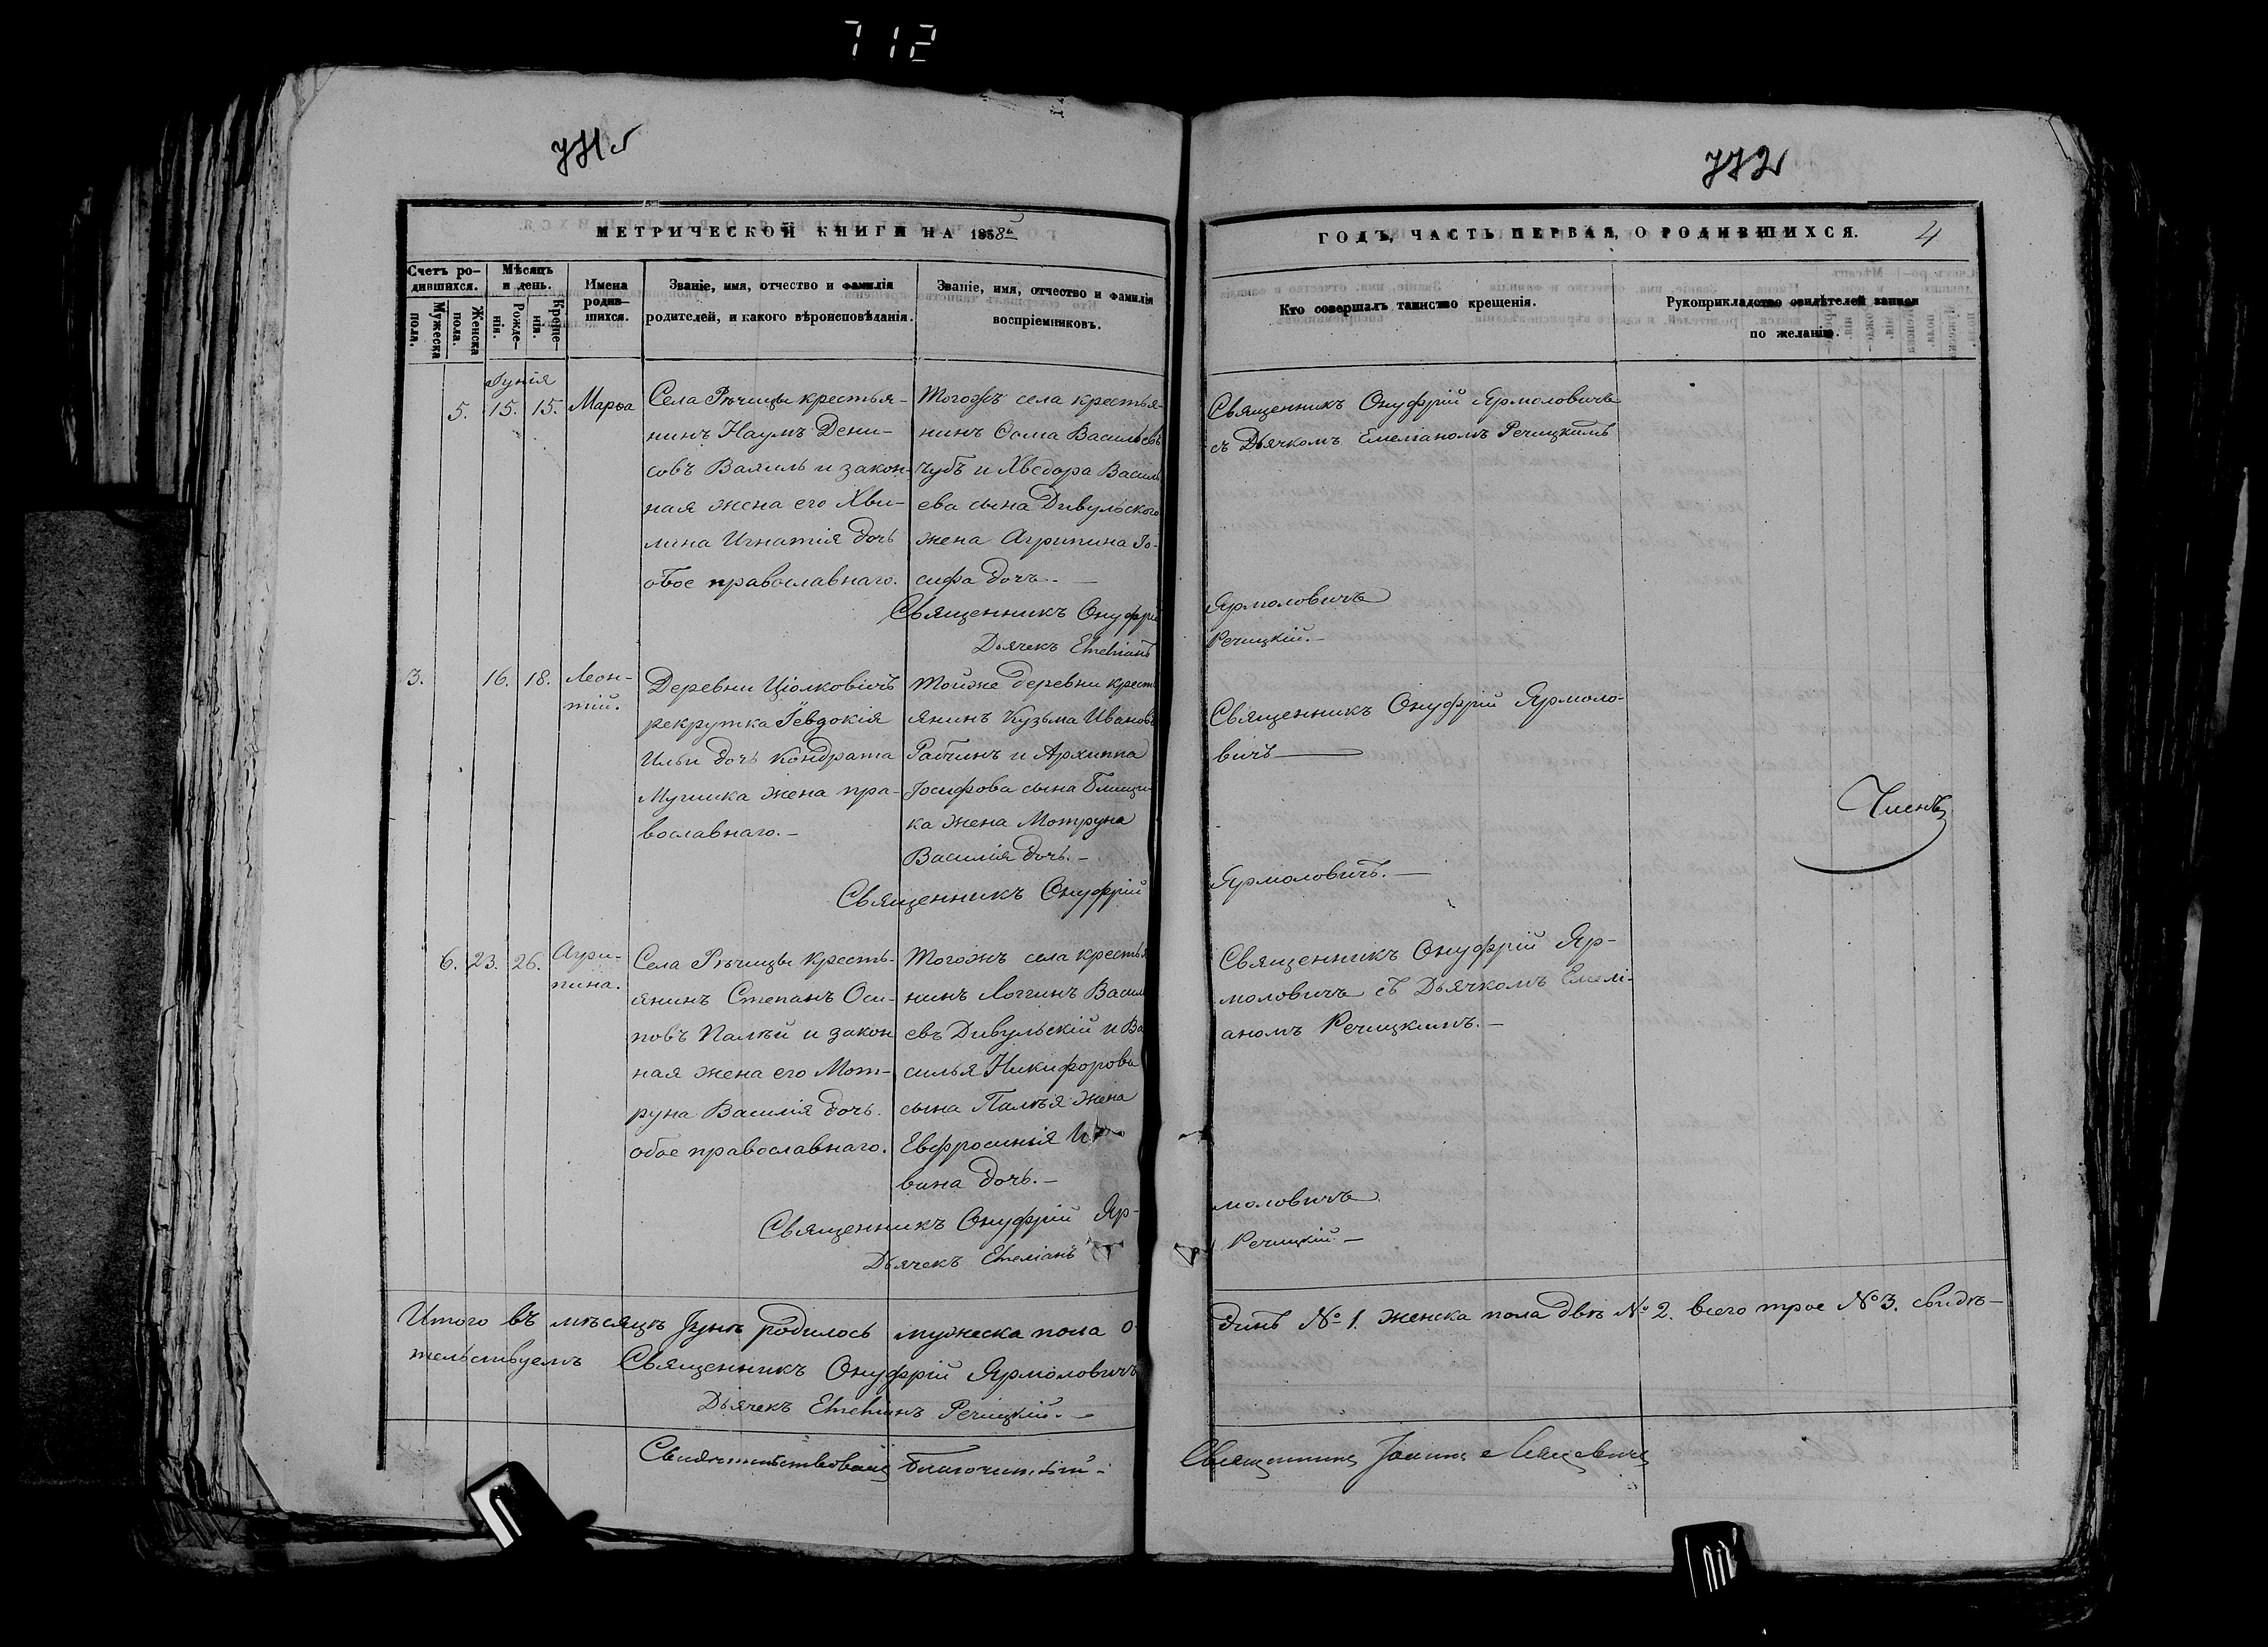 712
771
772
МЕТРИЧЕСКОЙ КНИГИ НА 1858й
Счетъ ро-
дившихся.
Мужеска
пола.
Женска
пола.
Мѣсяцъ
и день.
Рожде-
нія.
Креще-
нія.
Имена
родив-
шихся.
Званіе, имя, отчество и фамилія
родителей, и какого вѣроисповѣданія.
Званіе, имя, отчество и фамилія
воспріемниковъ.
ГОДЪ, ЧАСТЬ ПЕРВАЯ, О РОДИВШИХСЯ.
4
Кто совершалъ таинство крещенія.
Рукоприкладство свидѣтелей записи
по желанію.
Іунія
5. 15. 15. Марѳа
Села Рѣчицы крестья-
нинъ Наумъ Дени-
совъ и закон-
ная жена его Хви-
лина Игнатія дочь
обое православнаго.
Тогожъ села крестья-
нинъ Ѳома Васильевъ
Чубъ и Хведора Василь
ева сына Дивульского
жена Агрипина Іо-
сифа дочь. —
Священникъ Онуфрій
Дьячекъ Емеліанъ
Священникъ Онуфрій Ярмоловичъ
съ Дьячкомъ Емеліаномъ Речицкимъ
Ярмоловичъ
Речицкій. —
3. 16. 18. Леон-
тій.
Деревни Ціолковичъ
рекрутка Іевдокія
Ильи дочь Кондрата
жена пра-
вославнаго. —
Тойже деревни крест
янинъ Кузьма Ивановъ
и Архиппа
Іосифова сына
ка жена Мотруна
Василія дочь. —
Священникъ Онуфрій
Священникъ Онуфрій Ярмоло-
вичъ
Ярмоловичъ. —
6. 23. 26. Агри-
пина.
Села Рѣчицы кресть-
янинъ Степанъ Оси-
повъ Палѣй и закон
ная жена его Мот-
руна Василія дочь.
обое православнаго.
Тогожъ села крестья
нинъ Логгинъ Васил
евъ Дивульскій и Ва
силья Никифорова
сына Палѣя жена
Евфросинія
вина дочь. —
Священникъ Онуфрій Яр-
Дьячекъ Емеліанъ
Священникъ Онуфрій Яр-
моловичъ съ Дьячкомъ Емелі-
аномъ Речицкимъ. —
моловичъ
Речицкій —
Итого въ мѣсяцѣ Іунѣ родилось мужеска пола о-
динъ № 1. женска пола двѣ № 2. всего трое № 3. свидѣ-
тельствуемъ Священникъ Онуфрій Ярмоловичъ
Дьячекъ Емеліанъ Речицкій. —
Свидѣтельствовалъ благочинный
Священникъ Іоаннъ